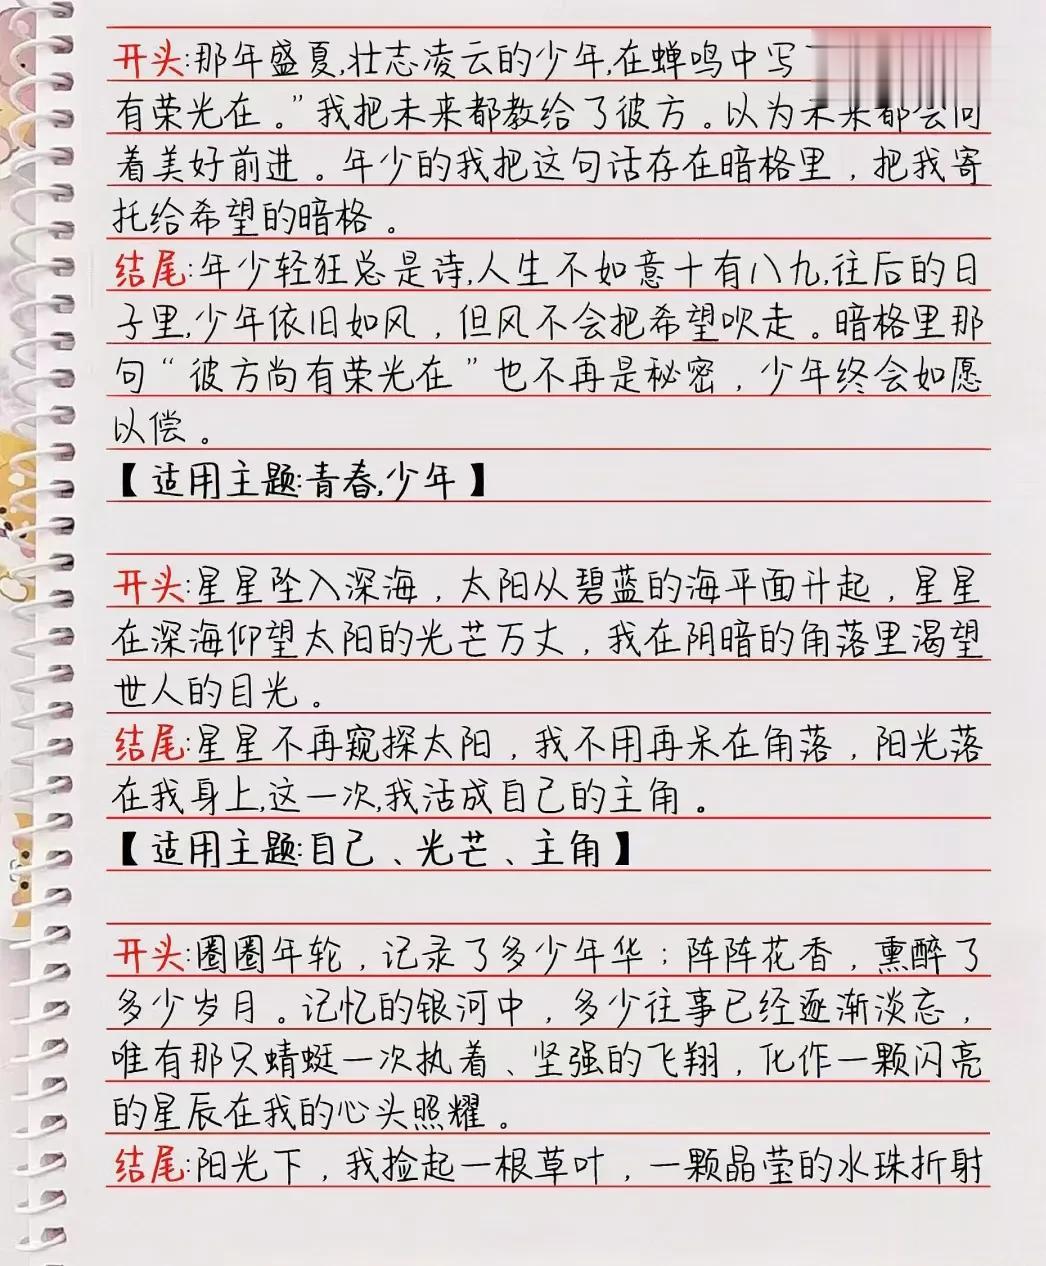 开头:那年盛夏,壮志凌云的少年,在蝉鸣中写
有荣光在。”我把未来都教给了彼方。以为未来都会向
着美好前进。年少的我把这句话存在暗格里，把我寄
托给希望的暗格。
结尾:年少轻狂总是诗,人生不如意十有八九,往后的日
子里,少年依旧如风，但风不会把希望吹走。暗格里那
句“彼方尚有荣光在”也不再是秘密，少年终会如愿
以偿。
【适用主题:青春,少年】
开头:星星坠入深海，太阳从碧蓝的海平面升起，星星
在深海仰望太阳的光芒万丈，我在阴暗的角落里渴望
世人的目光。
结尾:星星不再窥探太阳，我不用再呆在角落，阳光落
在我身上,这一次,我活成自己的主角。
【适用主题:自己、光芒、主角】
开头:圈圈年轮，记录了多少年华；阵阵花香，熏醉了
多少岁月。记忆的银河中，多少往事已经逐渐淡忘，
唯有那只蜻蜓一次执着、坚强的飞翔，化作一颗闪亮
的星辰在我的心头照耀。
结尾:阳光下，我捡起一根草叶，一颗晶莹的水珠折射